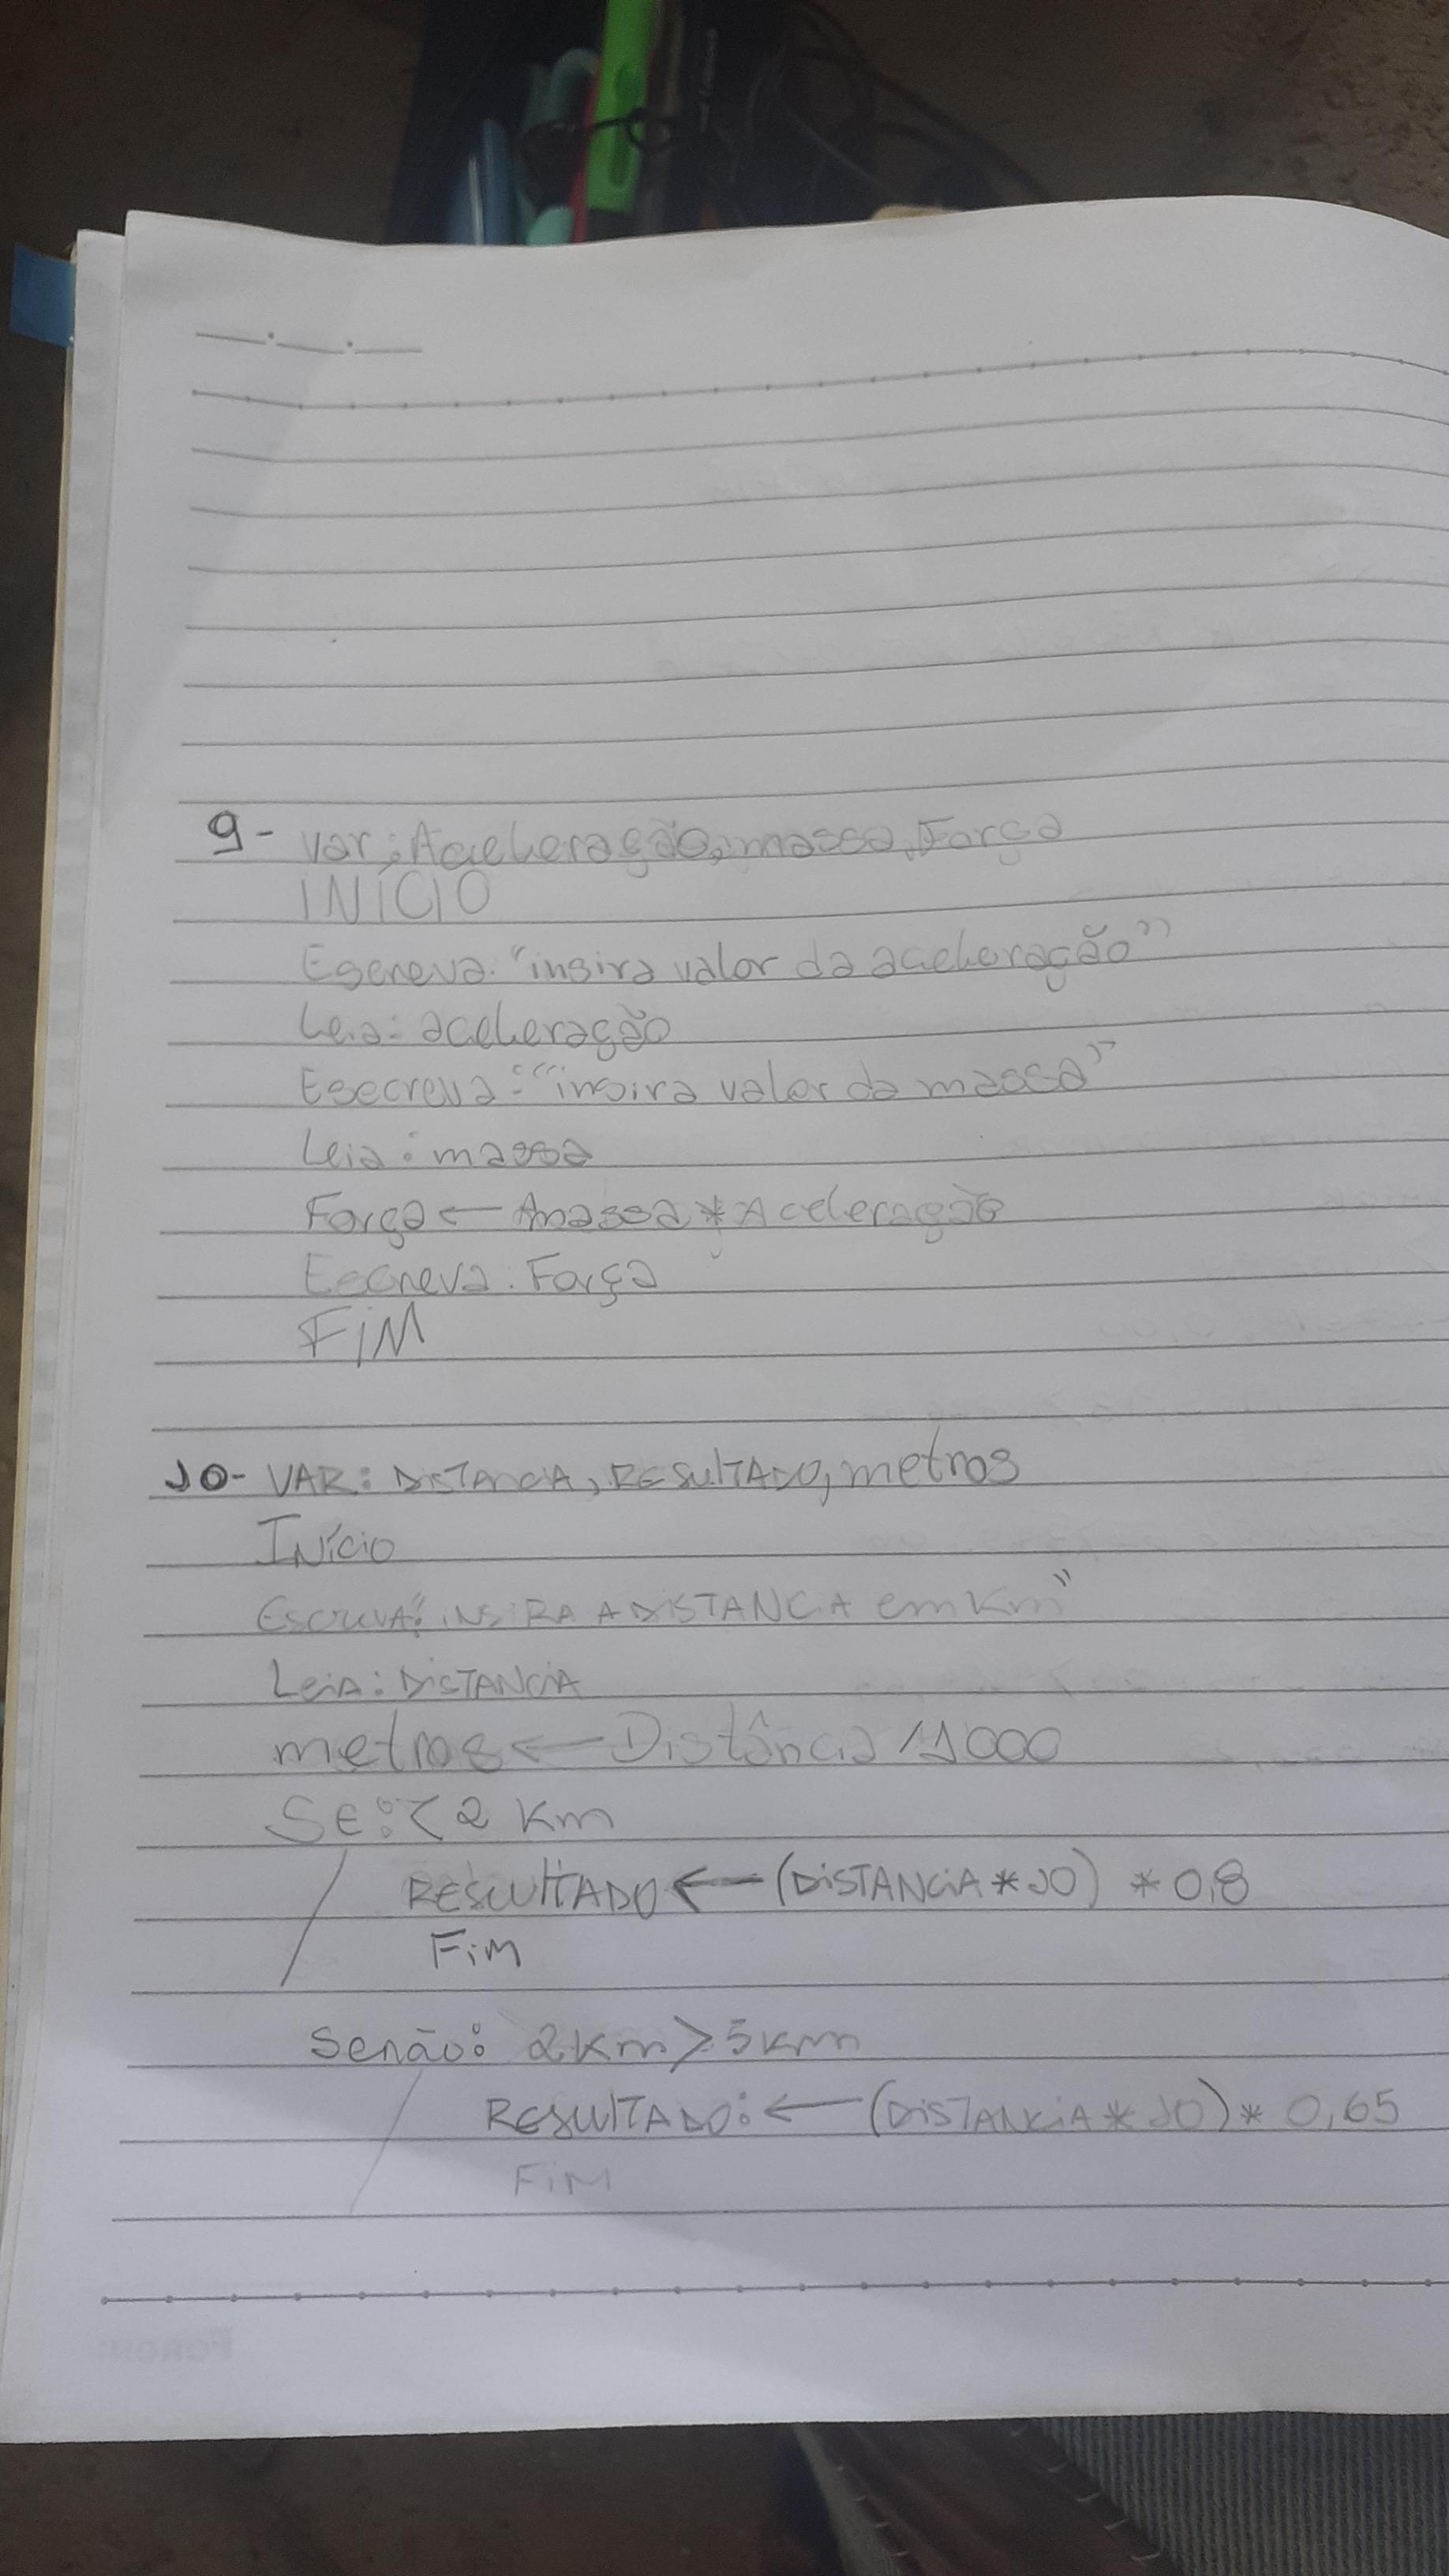 9- Var: Aceleração, massa, Força
INÍCIO
Escreva: "insira valor da aceleração"
Leia: aceleração
Esecreva: "insira valor da massa"
Leia: massa
Força ← massa * Aceleração
Escreva: Força
FIM
10- VAR: DISTANCIA, RESULTADO, metros
INÍCIO
ESCREVA: "INSIRA A DISTANCIA em Km"
LEIA: DISTANCIA
metros ← Distância /1000
SE: < 2 Km
RESULTADO ← (DISTANCIA * 10) * 0,8
FIM
Senão: 2 Km > 5 km
RESULTADO: ← (DISTANCIA * 10) * 0,65
FIM